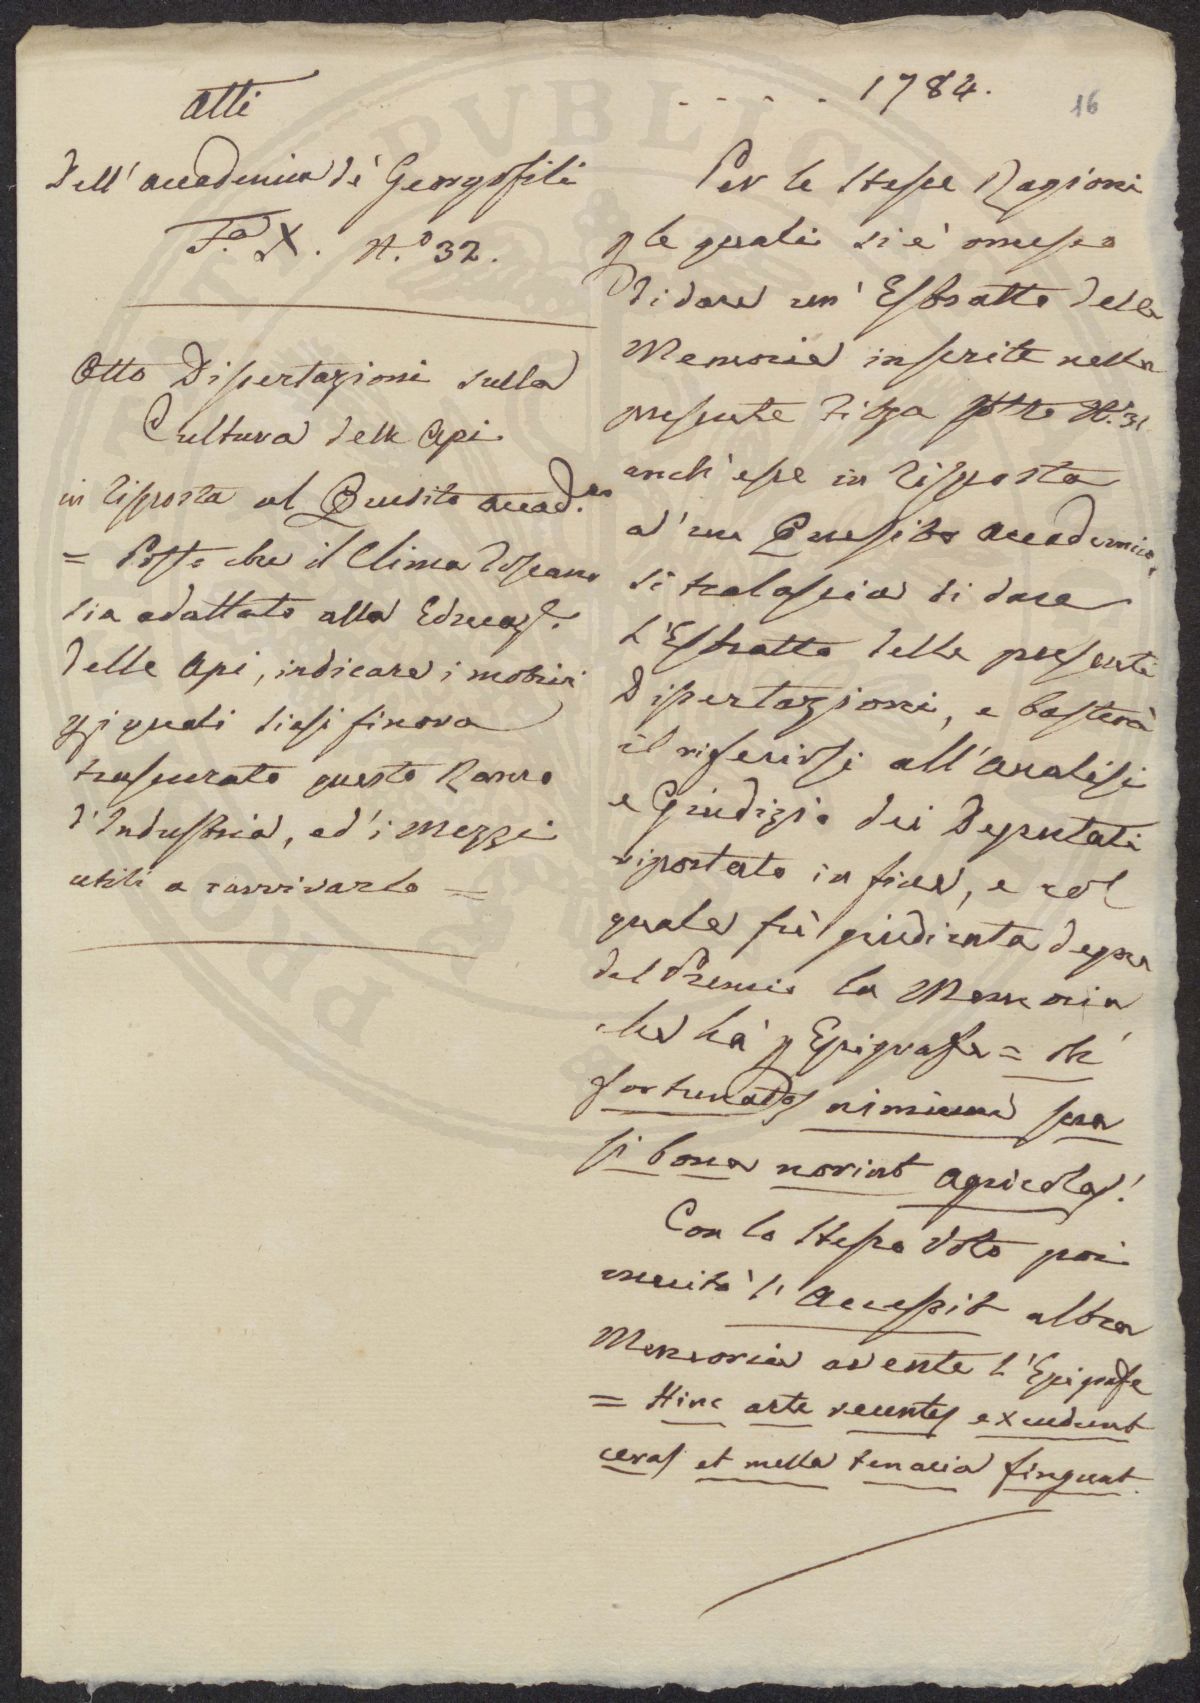 Atti
Dell'Accademia dè Georgofili
F.a X. N.o 32.
Otto Dissertazioni sulla
Cultura delle Api
in risposta al Quesito Accad.co
= Posto che il Clima Toscano
sia adattato alla Educaz.e
delle Api, indicare i motivi
p i quali siasi finora
trascurato questo Ramo
d'Industria, ed'i mezzi
utili a ravvivarlo =
. . . . . 1784.
16
Per le stesse Ragioni
p le quali si è omesso
di dare un'Estratto delle
Memorie inserite nella
presente Filza sotto N.o 31
anch'esse in risposta
ad'un Quesito Accademico,
si tralascia di dare
l'Estratto delle presenti
Dissertazioni, e basterà
il riferirsi all'Analisi
e Giudizio dei Deputati
riportato in fine, e col
quale fù giudicata degna
del Premio la Memoria
che hà p Epigrafe = Oh
fortunatos nimium sua
si bona norint Agricolas!
Con lo stesso Voto poi
meritò l'Accessit altra
Memoria avente l'Epigrafe
= Hinc arte recentes excudunt
ceras et mella tenacia fingunt.